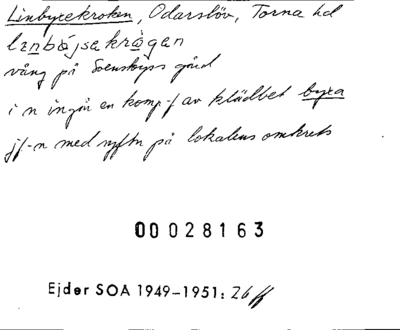 Linbyxekroken, Odarslöv, Torna hd
linbójsekrågan
vång på Svenstorps gård
i n ingår en komp-f av klädbet byxa
jf-n med syftn på lokalens omkrets
00028163
Ejder SOA 1949-1951: 26 ff